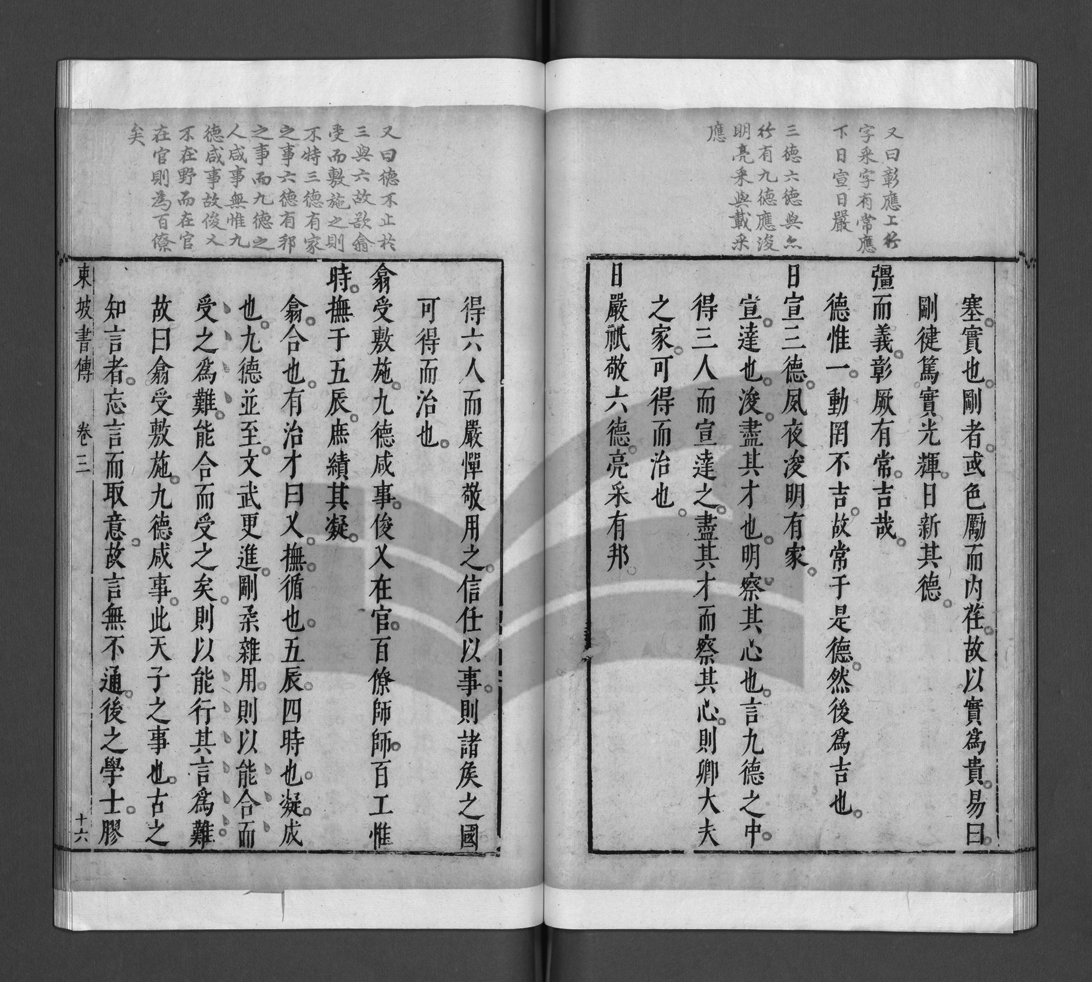 又曰彰應上行
字采字有常應
下日宣日嚴
三德六德與亦
行有九德應浚
明亮采與載采
應
塞實也剛者或色厲而內荏故以實爲貴易曰
剛健篤實光輝日新其德
彊而義彰厥有常吉哉
德惟一動罔不吉故常于是德然後爲吉也
日宣三德夙夜浚明有家
宣達也浚盡其才也明察其心也言九德之中
得三人而宣達之盡其才而察其心則卿大夫
之家可得而治也
日嚴祗敬六德亮采有邦
又曰德不止於
三與六故歙翕
受而敷施之則
不特三德有家
之事六德有邦
之事而九德之
人咸事無惟九
德咸事故俊乂
不在野而在官
在官則為百僚
矣
得六人而嚴憚敬用之信任以事則諸侯之國
可得而治也
翕受敷施九德咸事俊乂在官百僚師師百工惟
時撫于五辰庶績其凝
翕合也有治才曰乂撫循也五辰四時也凝成
也九德並至文武更進剛柔雜用則以能合而
受之爲難能合而受之矣則以能行其言爲難
故曰翕受敷施九德咸事此天子之事也古之
知言者忘言而取意故言無不通後之學士膠
東坡書傳 卷三 十六